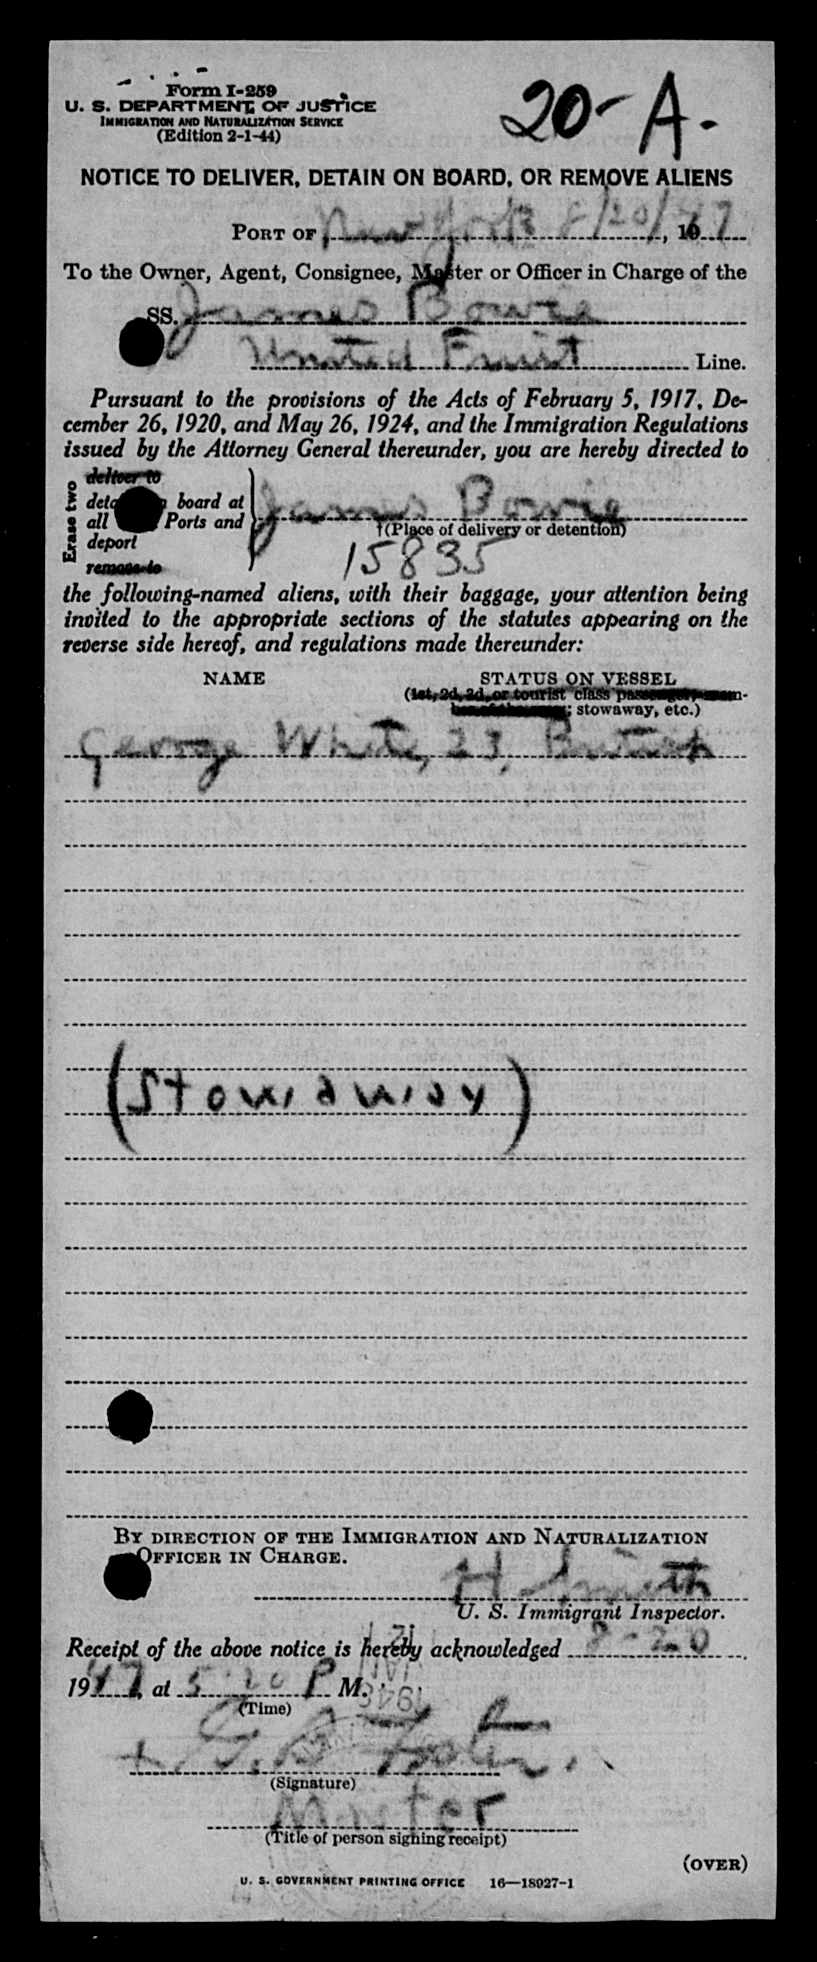 Form I-259
20-A.
U. S. DEPARTMENT OF JUSTICE
IMMIGRATION AND NATURALIZATION SERVICE
(Edition 2-1-44)
NOTICE TO DELIVER, DETAIN ON BOARD, OR REMOVE ALIENS
PORT OF New York 8/20/47, 19
To the Owner, Agent, Consignee, Master or Officer in Charge of the
SS. James Bowie
United Fruit Line.
Pursuant to the provisions of the Acts of February 5, 1917, De-
cember 26, 1920, and May 26, 1924, and the Immigration Regulations
issued by the Attorney General thereunder, you are hereby directed to
Erase two
deliver to
board at
all Ports and
deport
remove to
James Bowie
†(Place of delivery or detention)
15835
the following-named aliens, with their baggage, your attention being
invited to the appropriate sections of the statutes appearing on the
reverse side hereof, and regulations made thereunder:
NAME STATUS ON VESSEL
(1st, 2d, 3d, or tourist class passenger, mem-
; stowaway, etc.)
George White, 23, British
(Stowaway)
BY DIRECTION OF THE IMMIGRATION AND NATURALIZATION
OFFICER IN CHARGE.
H Smith
U. S. Immigrant Inspector.
Receipt of the above notice is hereby acknowledged 8-20,
1947, at 5:20 P M.
(Time)
G. B. Foster
(Signature)
Master
(Title of person signing receipt)
(OVER)
U. S. GOVERNMENT PRINTING OFFICE 16—18027-1